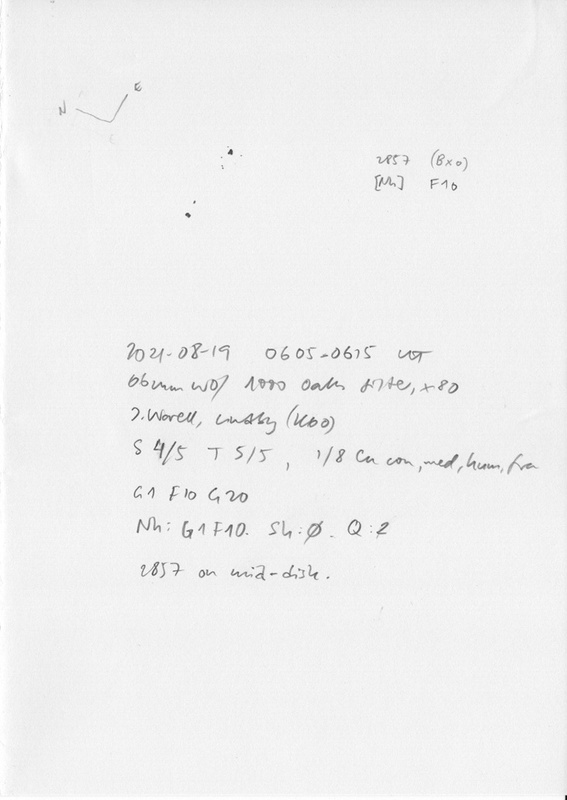 N E
2857 (Bxo)
[Nh] F10
2021-08-19 0605-0615 UT
1000 oaks filter, x80
J. Warell, (K60)
S 4/5 T 5/5, 1/8 Cu con, med, hum, fra
G1 F10 G20
Nh: G1 F10. Sh: Ø. Q: 2
2857 on mid-disk.